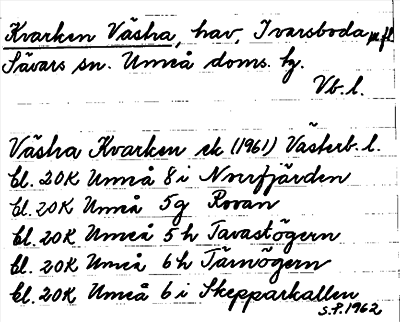 Kvarken Västra, hav, Ivarsboda m.fl.
Sävars sn. Umeå doms. hg.
Vb.l.
Västra Kvarken ek (1961) Västerb. l.
bl. 20K Umeå 8 i Norrfjärden
bl. 20K Umeå 5g Rovan
bl. 20K Umeå 5 h Tavastögern
bl. 20K Umeå 6 h Tärnögern
bl. 20K Umeå 6 i Skepparkallen
S.P. 1962